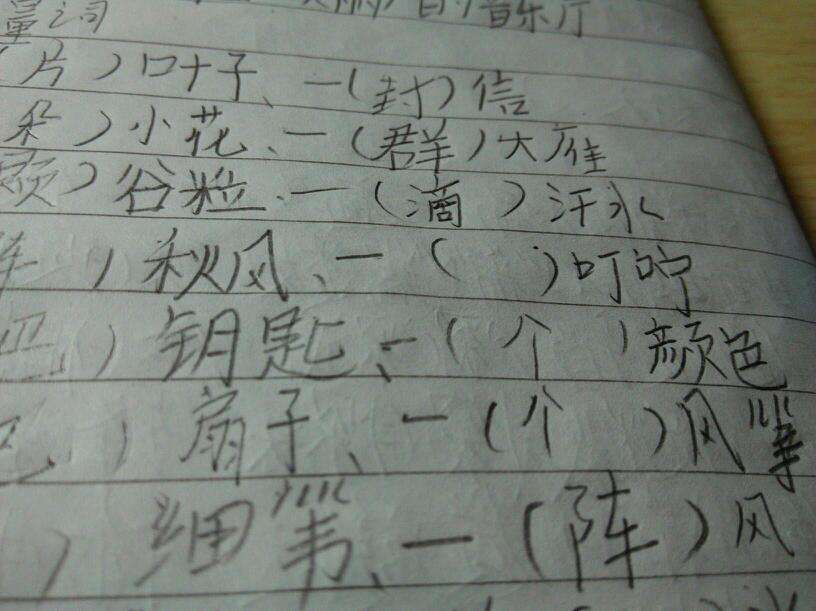 量之词 的音乐厅
片）叶子、一（封）信
朵）小花、一（群）大雁
颗）谷粒、一（滴）汗水
阵）秋风、一（ ）叮咛
把）钥匙、一（个）颜色
把）扇子、一（个）风筝
）细苇、一（阵）风